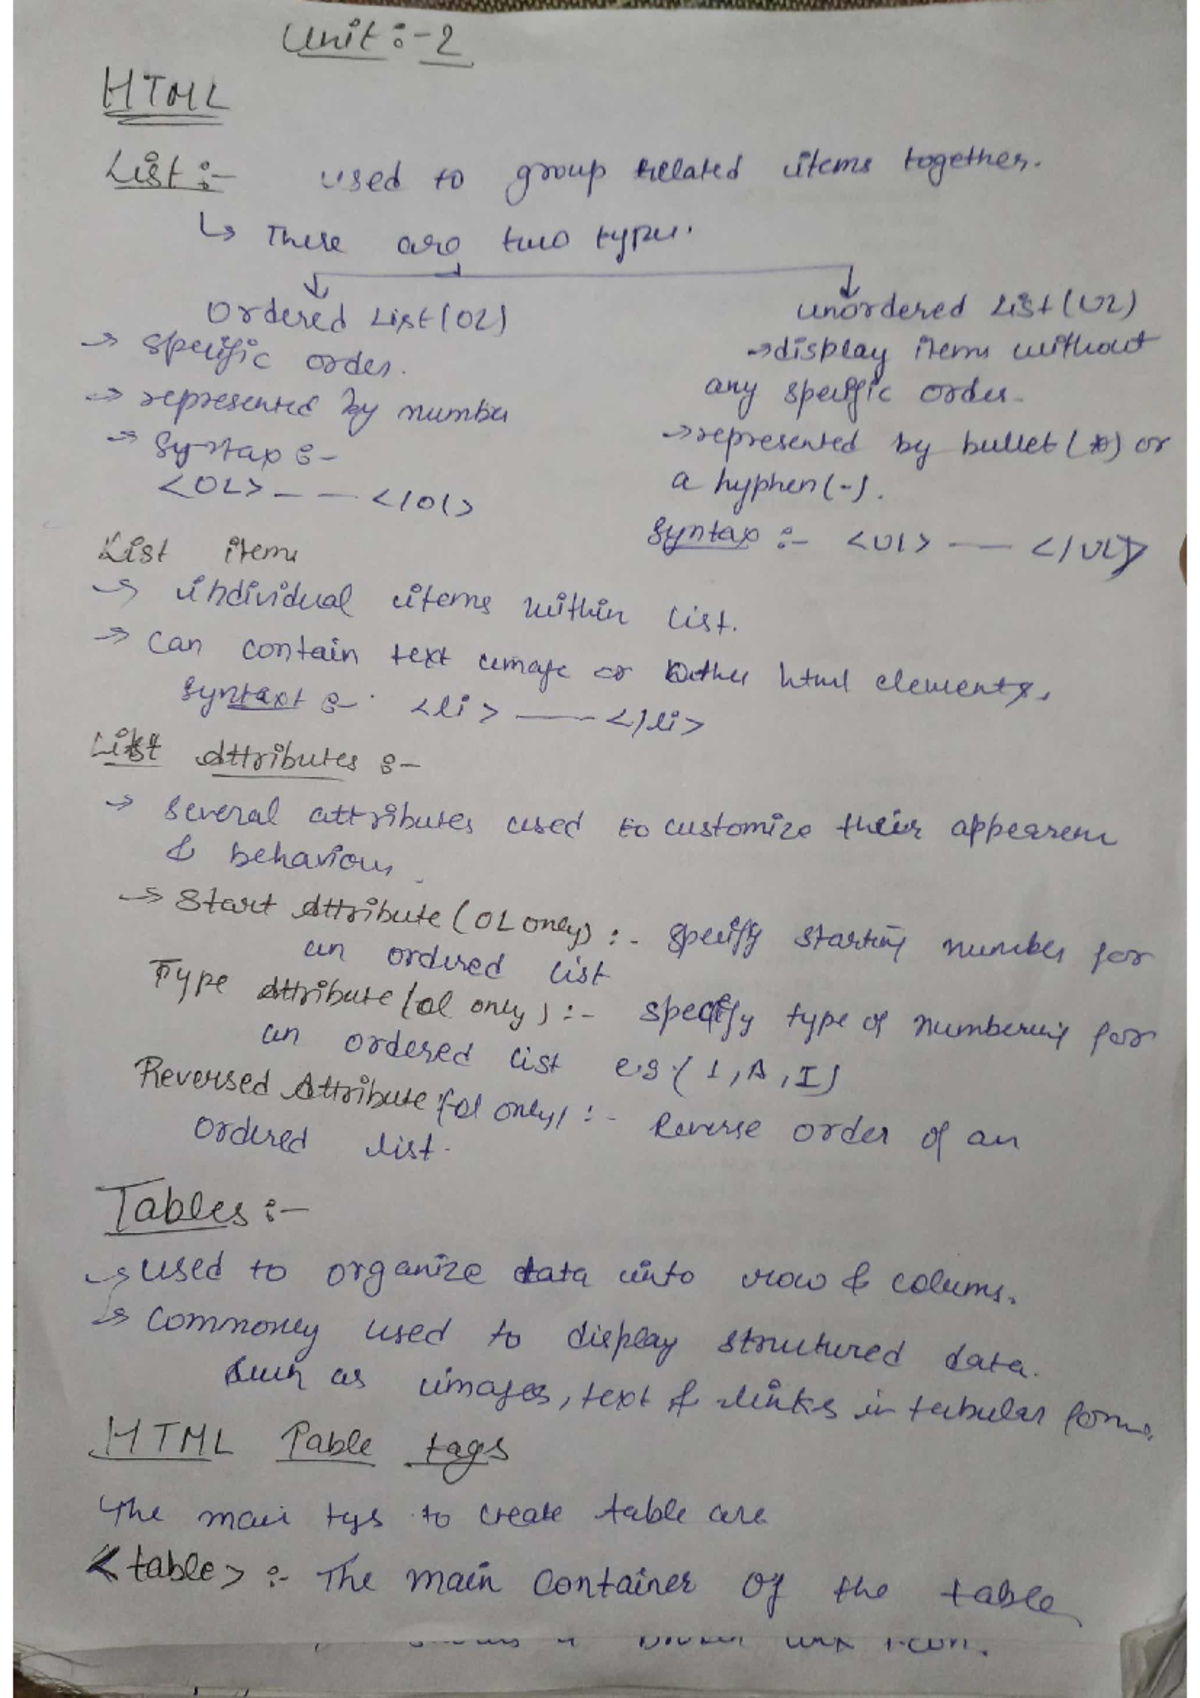 Unit :- 2
HTML
List :- used to group related items together.
↳ There are two type.
Ordered List (OL)
→ specific order.
→ represented by number
→ Syntax :-
<OL> - - - </Ol>
unordered List (UL)
→ display items without
any specific order.
→ represented by bullet (*) or
a hyphen (-).
Syntax :- <Ul> —— </UL>
List items
→ individual items within list.
→ Can contain text image or Other html elements.
Syntaxt :- <li> —— </li>
List Attributes :-
→ several attributes used to customize their appearence
& behaviour
→ Start Attribute (OL only) :- specify starting number for
an ordered list
Type Attribute (ol only) :- specify type of numbering for
an ordered list e.g (1, A, I)
Reversed Attribute (ol only) :- Reverse order of an
ordered list.
Tables :-
→ used to organize data into row & colums.
→ Commonly used to display structured data.
Such as images, text & links in tabular form.
HTML Table tags
The main tags to create table are
<table> :- The main container of the table